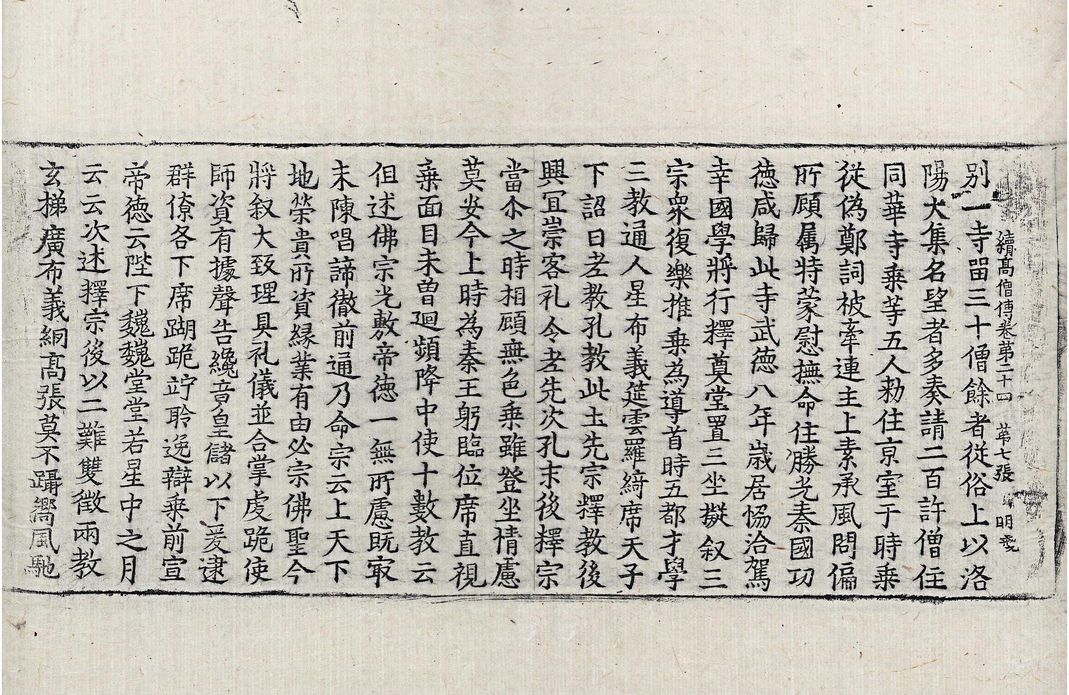 續高僧傳卷第二十四　第七張　明
別一寺留三十僧餘者從俗上以洛
陽大集名望者多奏請二百許僧住
同華寺乗等五人勑住京室于時乗
從偽鄭詞被牽連主上素承風問偏
所顧属特蒙慰撫命住勝光秦國功
徳咸歸此寺武徳八年歳居協洽駕
幸國學將行釋奠堂置三坐擬叙三
宗衆復樂推乗為導首時五都才學
三教通人星布義莚雲羅綺席天子
下詔曰老教孔教此土先宗釋教後
興冝崇客礼令老先次孔末後釋宗
當尒之時相顧無色乗雖登坐情慮
莫安今上時為秦王躬臨位席直視
乗面目未曽廻頻降中使十數教云
但述佛宗光敷帝徳一無所慮既㝡
末陳唱諦徹前通乃命宗云上天下
地榮貴所資縁業有由必宗佛聖今
將叙大致理具礼儀並合掌虔跪使
師資有據聲告纔竟皇儲以下爰逮
群僚各下席䠒跪竚聆逸辯乗前宣
帝徳云陛下巍巍堂堂若星中之月
云云次述釋宗後以二難雙徴兩教
玄梯廣布義網髙張莫不躡嚮風馳